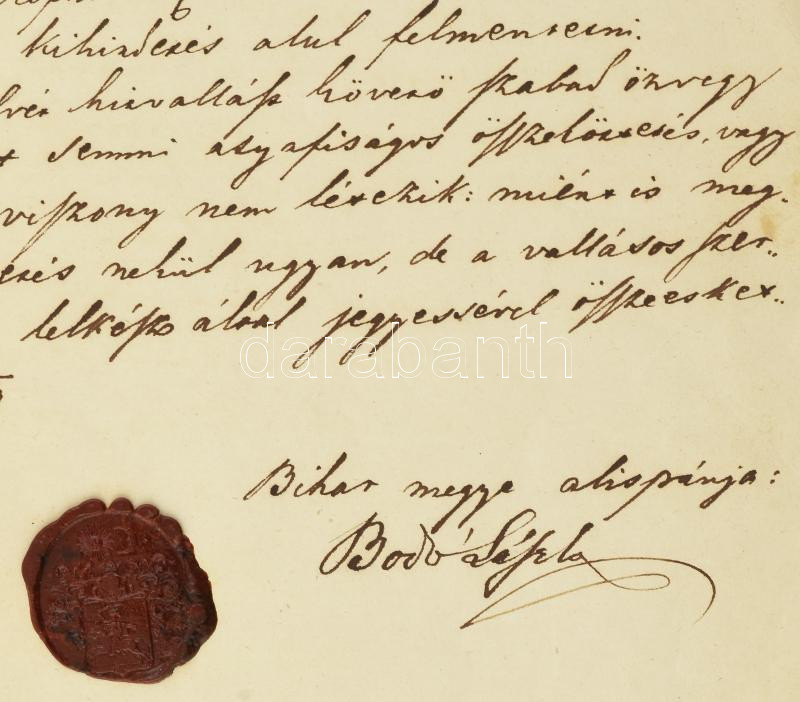 kihirdetés alul felmentetni.
hitvallású követő szabad özvegy
semmi atyafiságos összeköttetés, vagy
viszony nem létezik: miért is meg-
etés nekül ugyan, de a vallásos szer-
lelkész által jegyessével összeesket-
darabanth
Bihar megye alispánja:
Bodó